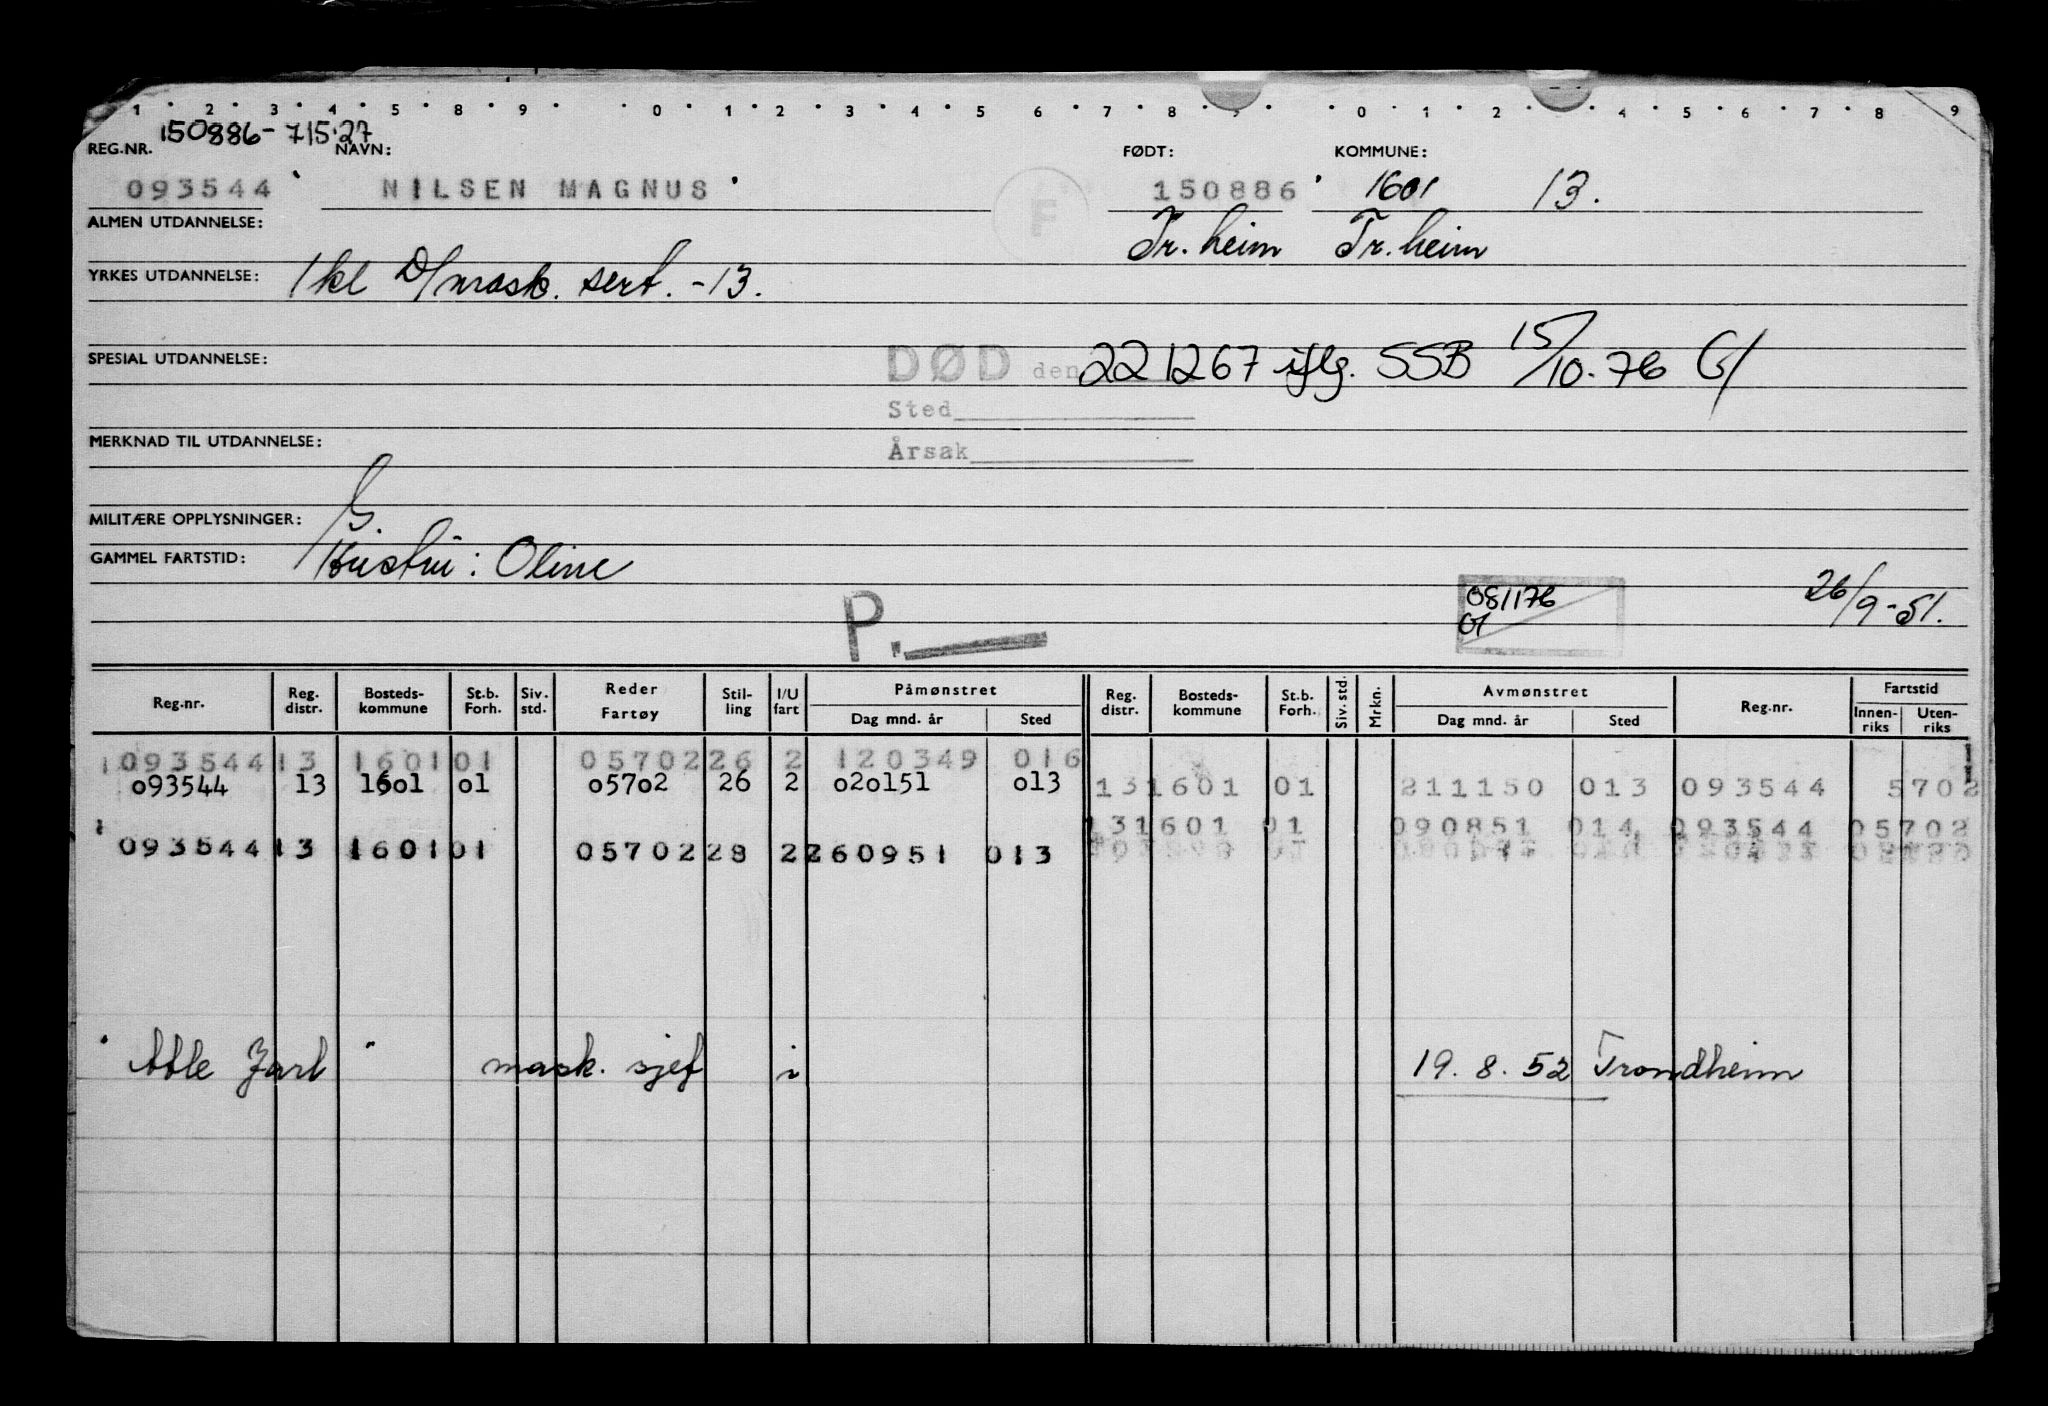 1 2 3 4 5 8 9 0 1 2 3 4 5 6 7 8 9 0 1 2 3 4 5 6 7 8 9
150886-71527
REG.NR. NAVN: FØDT: KOMMUNE:
093544 NILSEN MAGNUS 150886 1601 13.
F
ALMEN UTDANNELSE: Tr.heim Tr.heim
YRKES UTDANNELSE: 1 kl D/mask. sert. -13.
SPESIAL UTDANNELSE: DØD den 221267 iflg. SSB 15/10-76
Sted
MERKNAD TIL UTDANNELSE: Årsak
MILITÆRE OPPLYSNINGER: G.
GAMMEL FARTSTID: Hustru: Oline
081176 26/9-51.
P.
Reg.nr. Reg. distr. Bosteds- kommune St.b. Forh. Siv. std. Reder Fartøy Stil- ling I/U fart Påmønstret Dag mnd. år Sted Reg. distr. Bosteds- kommune St.b. Forh. Siv. std. Mrkn. Avmønstret Dag mnd. år Sted Reg.nr. Fartstid Innen- riks Uten- riks
093544 13 1601 01 05702 26 2 120349 016
093544 13 1601 01 05702 26 2 020151 013 13 1601 01 211150 013 093544 5702
13 1601 01 090851 014 093544 05702
093544 13 1601 01 05702 28 2 260951 013
" Atle Jarl " mask. sjef i 19.8.52 Trondheim